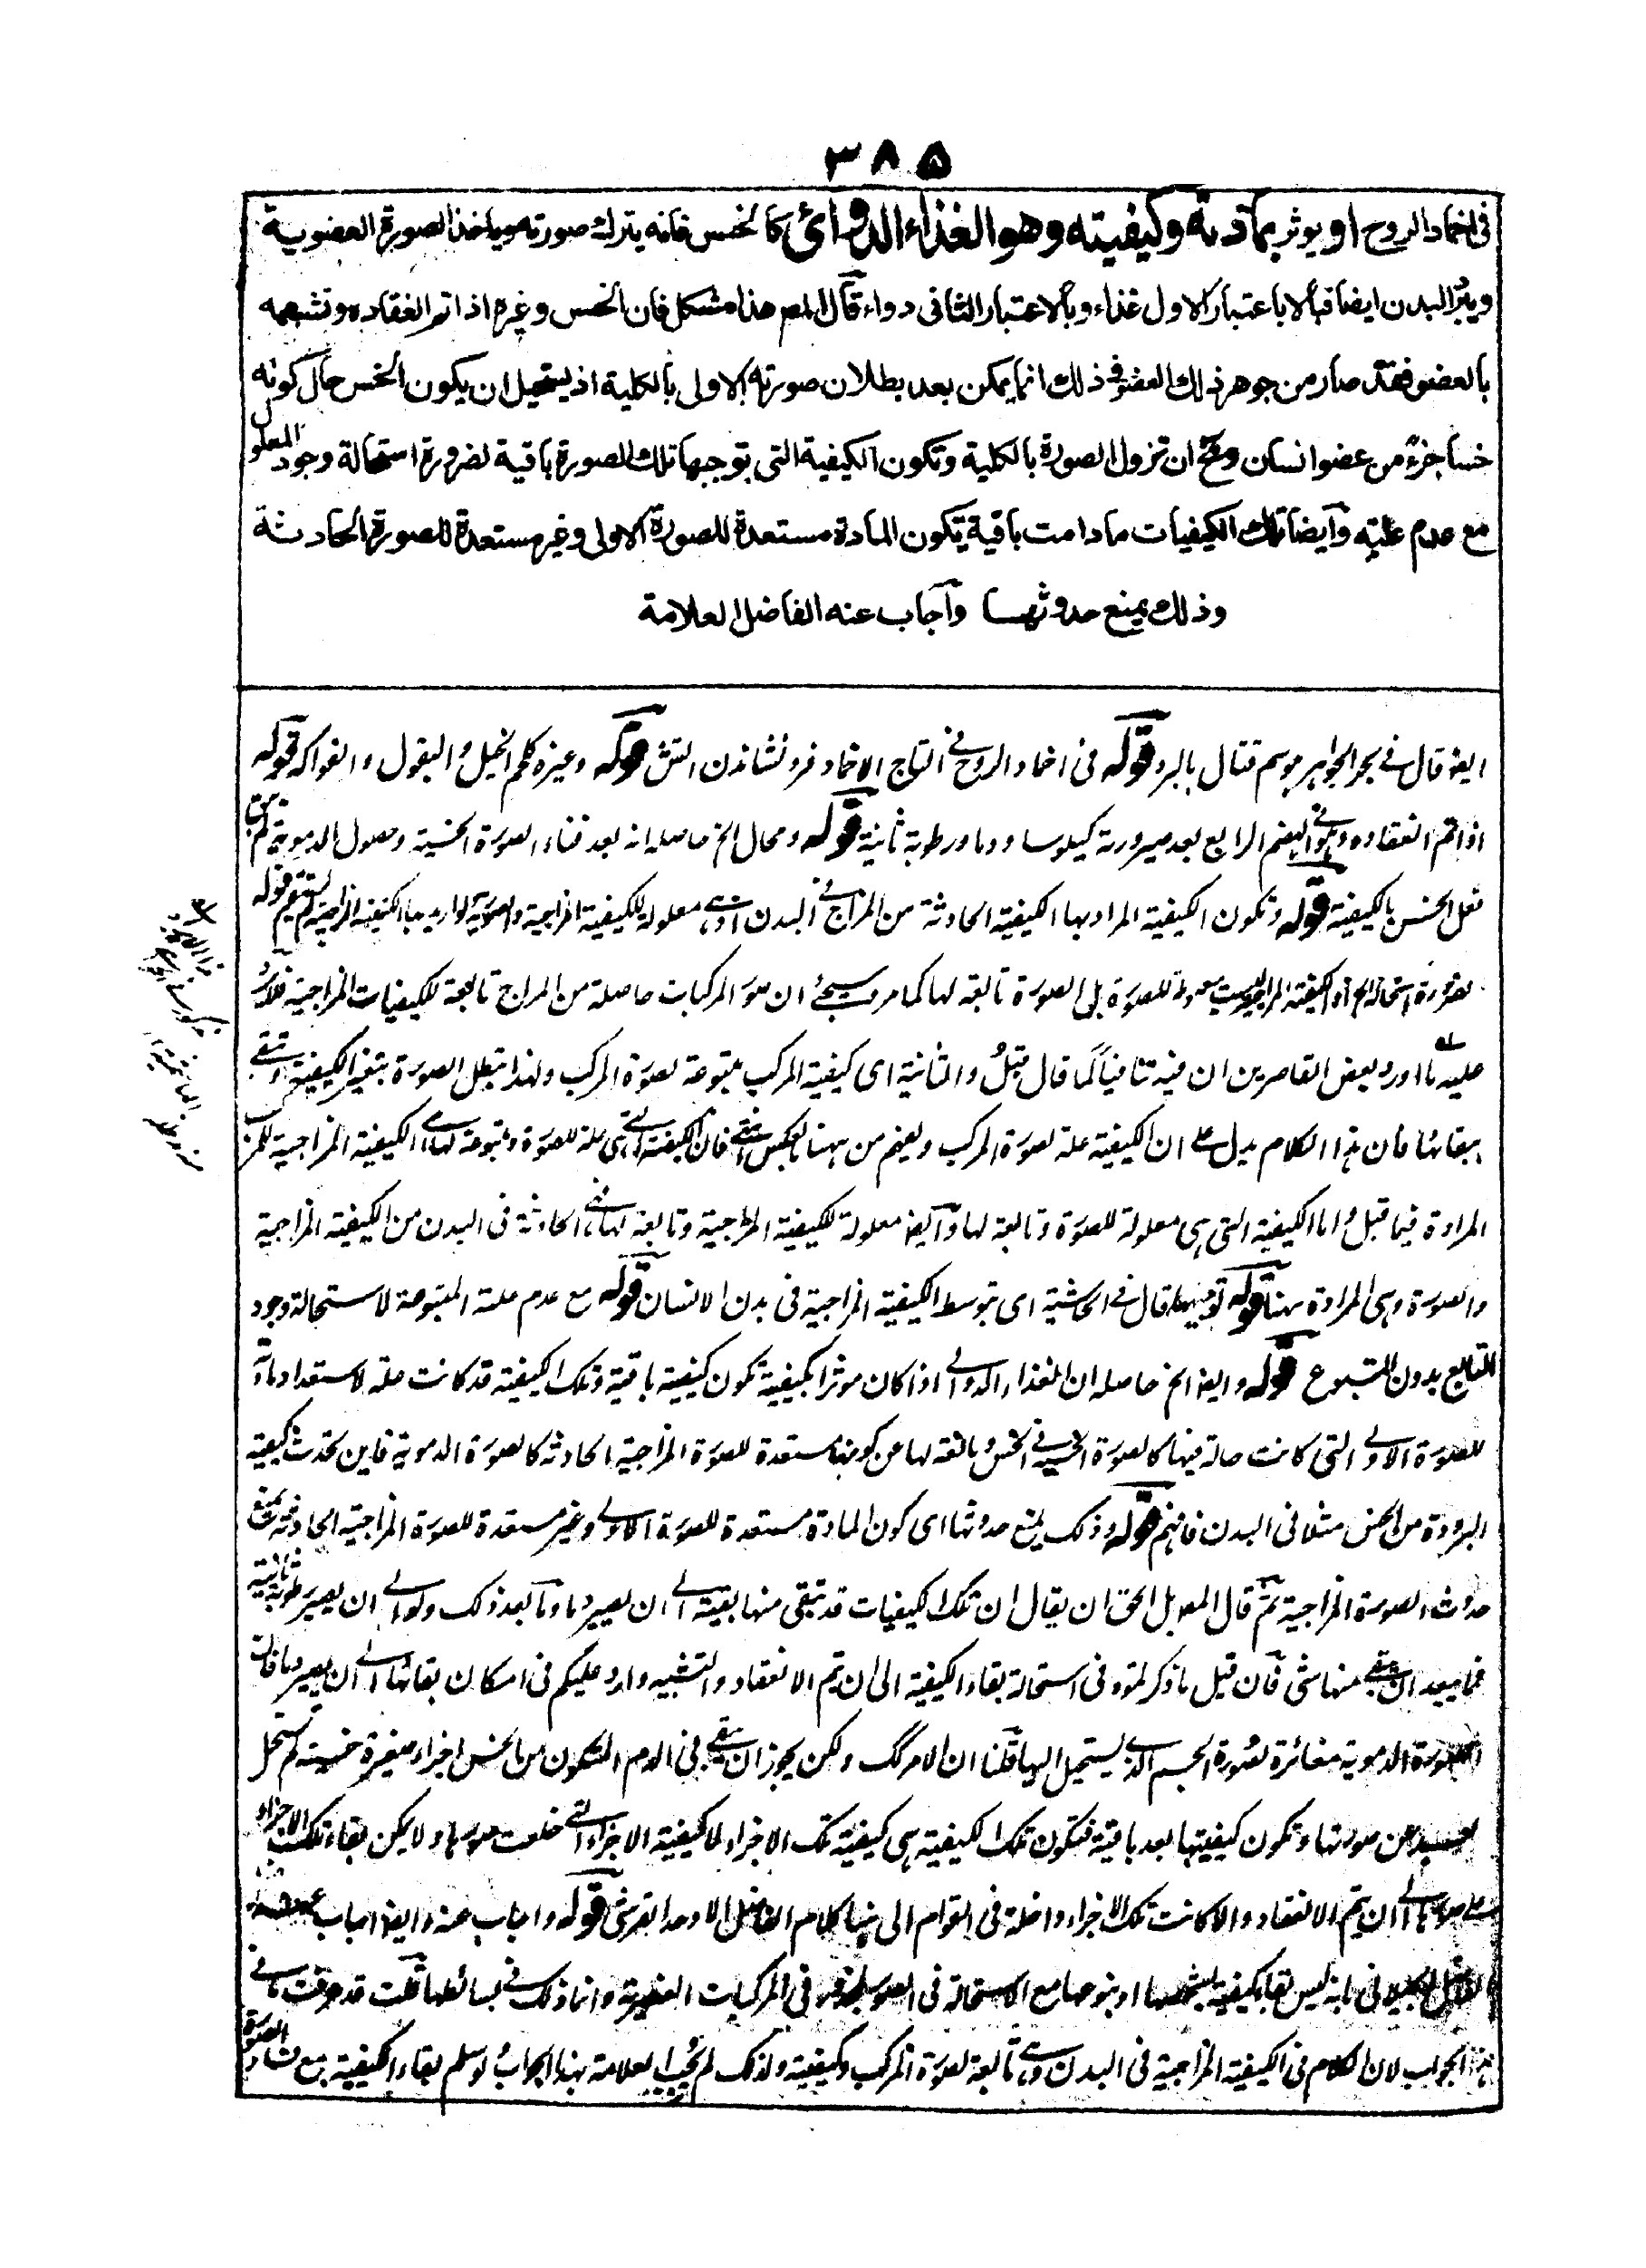 ٣٨٥
فى اخماد الروح او يوثر بمادته وكيفيته وهو الغذاء الدوائى كالخس فانه يترك صورته وياخذ الصورة العضوية
ويبرد البدن ايضا فبالاعتبار الاول غذاء وبالاعتبار الثانى دواء قال المص هذا مشكل فان الخس وغيره اذا تم انعقاده وتشبهه
بالعضو فقد صار من جوهر ذلك العضو و ذلك انما يمكن بعد بطلان صورته الاولى بالكلية اذ يستحيل ان يكون الخس حال كونه
خسا جزءً من عضو انسان ومح ان تزول الصورة بالكلية وتكون الكيفية التى توجبها تلك الصورة باقية لضرورة استحالة وجود المعلول
مع عدم علته وايضا تلك الكيفيات ما دامت باقية يكون المادة مستعدة للصورة الاولى وغير مستعدة للصورة الحادثة
وذلك يمنع حدوثها واجاب عنه الفاضل العلامة
ايضا قال فى بحر الجواهر قتال بالبرد قوله فى اخماد الروح فى التاج الاخماد فرو نشاندن اتش قوله وغيره كلحم الخيل والبقول والفواكه قوله
اذا تم انعقاده وهو الهضم الرابع بعد صيرورته كيلوسا ودما ورطوبة ثانية قوله ومحال الخ حاصله انه بعد فناء الصورة الخسية وحصول الدموية لم يبق
فعل الخس بالكيفية قوله وتكون الكيفية المراد بها الكيفية الحادثة من المزاج فى البدن معلولة للكيفية المزاجية والصورة لو اريد بها الكيفية المزاجية لم يستقم قوله
لضرورة استحالة الخ للصورة بل الصورة تابعة لها كما مر وسيجئ ان صور المركبات حاصلة من المزاج تابعة للكيفيات المزاجية فلا يرد
عليه ما اورد بعض القاصرين ان فيه تنافيا لما قال قبل والثانية اى كيفية المركب متبوعة لصورة المركب ولهذا تبطل الصورة بتغير الكيفية وتبقى
ببقائها فان هذا الكلام يدل على ان الكيفية علة لصورة المركب ويفهم من ههنا بالعكس انتهى فان الكيفية التى هى علة للصورة ومتبوعة لها هى الكيفية المزاجية للمركب
المرادة فيما قبل واما الكيفية التى هى معلولة للصورة وتابعة لها وايضا معلولة للكيفية المزاجية وتابعة لها فهى الحادثة فى البدن من الكيفية المزاجية
والصورة وهى المرادة ههنا قوله توجبها قال فى الحاشية اى بتوسط الكيفية المزاجية فى بدن الانسان قوله مع عدم علته المتبوعة لاستحالة وجود
التابع بدون المتبوع قوله وايضا الخ حاصله ان الغذاء الدوائى اذا كان موثرا بكيفية تكون كيفية باقية وتلك الكيفية قد كانت علة لاستعداد مادته
للصورة الاولى التى كانت حالة فيها كالصورة الخسية فى الخس ومانعة لها عن كونها مستعدة للصورة المزاجية الحادثة كالصورة الدموية فاين تحدث كيفية
البرودة من الخس مثلا فى البدن فافهم قوله وذلك يمنع حدوثها اى كون المادة مستعدة للصورة الاولى وغير مستعدة للصورة المزاجية الحادثة يمنع
حدوث الصورة المزاجية ثم قال المص بل الحق ان يقال ان تلك الكيفيات قد تبقى منها بقية الى ان يصير دما وما بعد ذلك ولو الى ان يصير رطوبة ثانية
فما يبعد ان يبقى منها شئ فان قيل ما ذكرتموه فى استحالة بقاء الكيفية الى ان تم الانعقاد والتشبيه وارد عليكم فى امكان بقائها الى ان يصير دما فان
الصورة الدموية مغائرة لصورة الجسم الذى يستحيل اليها قلنا ان الامر كك ولكن يجوز ان يبقى فى الدم المتكون من الخس اجزاء صغيرة خسية لم تستحل
بعد عن صورتها وتكون كيفيتها بعد باقية فتكون تلك الكيفية هى كيفية تلك الاجزاء لا كيفية الاجزاء التى خلعت صورها ولا يمكن بقاء تلك الاجزاء
على صورها الى ان يتم الانعقاد والا كانت تلك الاجزاء داخلة فى القوام الى هنا كلام الفاضل الاوحد القرشى قوله واجاب عنه وايضا اجاب عنه
الفاضل الجيلانى بانه ليس بقاء كيفية بشخصها او بنوعها مع الاستحالة فى الصورة فى المركبات العنصرية وانما ذلك فى بسائطها قلت قد عرفت ما فى
هذا الجواب لان الكلام فى الكيفية المزاجية فى البدن وهى تابعة لصورة المركب وكيفيته ولذلك لم يجب العلامة بهذا الجواب لو سلم بقاء الكيفية مع فساد الصورة